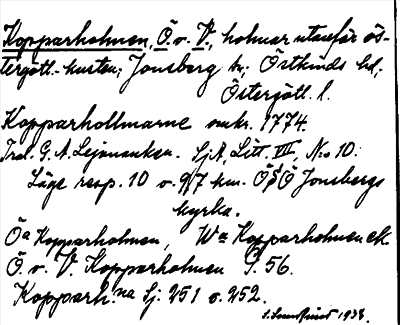 Kopparholmen, Ö. o. V., holmar utanför ös-
tergötl.-kusten; Jonsberg sn; Östkinds hd,
Östergötl. l.
Kopparhollmarne omkr. 1774.
Trol. G. A. Lejonancker. SjA, Litt. VIII, N:o 10.
Läge resp. 10 o. 9,7 km. ÖSÖ Jonsbergs
kyrka.
Öa Kopparholmen, Wa Kopparholmen ek
Ö. o. V. Kopparholmen G. 56.
Kopparh.na Sj. 251 o. 252.
1938.